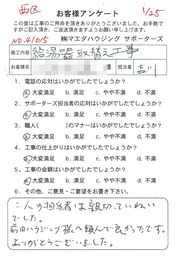 西区
お客様アンケート
1/25
この度は工事のご用命を頂きありがとうございました。お手数ですがご記入頂き、ご返送頂きますようお願い申し上げます。
No.41015
㈱マエダハウジング サポーターズ
工事内容 給湯器取替え工事
お名前 様 担当者
1. 電話の応対はいかがでしたでしょうか？
a. 大変満足 b. 満足 c. やや不満 d. 不満
2. サポーターズ担当者の応対はいかがでしたでしょうか？
a. 大変満足 b. 満足 c. やや不満 d. 不満
3. 職人 のマナーはいかがでしたでしょうか？
a. 大変満足 b. 満足 c. やや不満 d. 不満
4. 工事の仕上がりはいかがでしたでしょうか？
a. 大変満足 b. 満足 c. やや不満 d. 不満
5. 価格はいかがでしたでしょうか？
a. 大変満足 b. 満足 c. やや不満 d. 不満
6. その他、ご意見・ご要望をお書き下さい。
この担当者は親切でていねい
でした。
前田ハウジング様へ頼んで良かったです。
ありがとうございました。